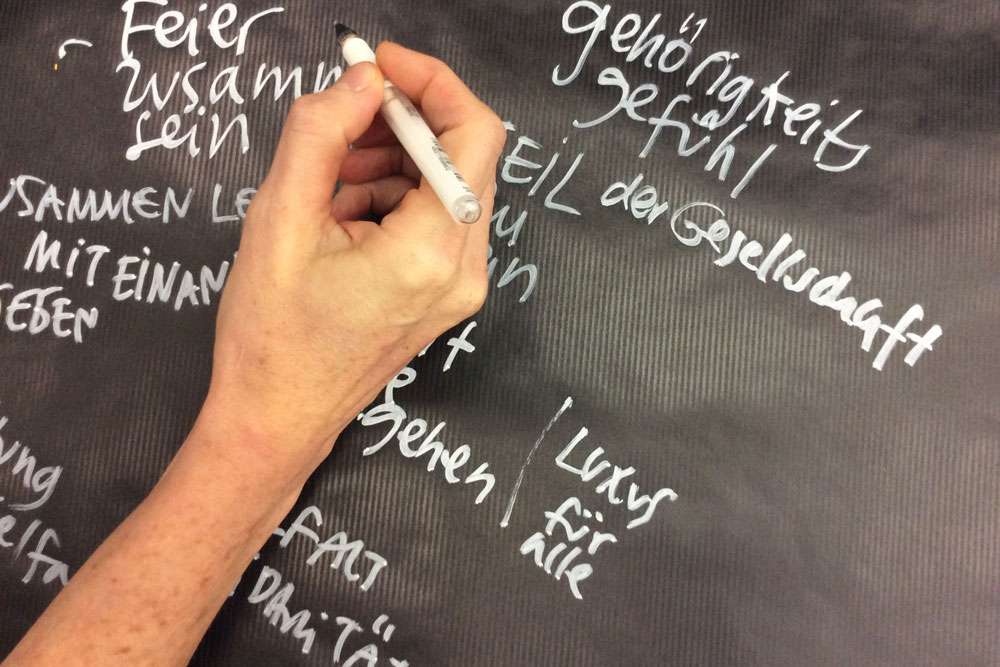 Feier
zusamm
sein
gehörigkeits
gefühl
TEIL der Gesellschaft
USAMMEN LE
MITEINAN
GEBEN
gehen
Luxus
für
alle
ung
elfa
FALT
DARiTÄ